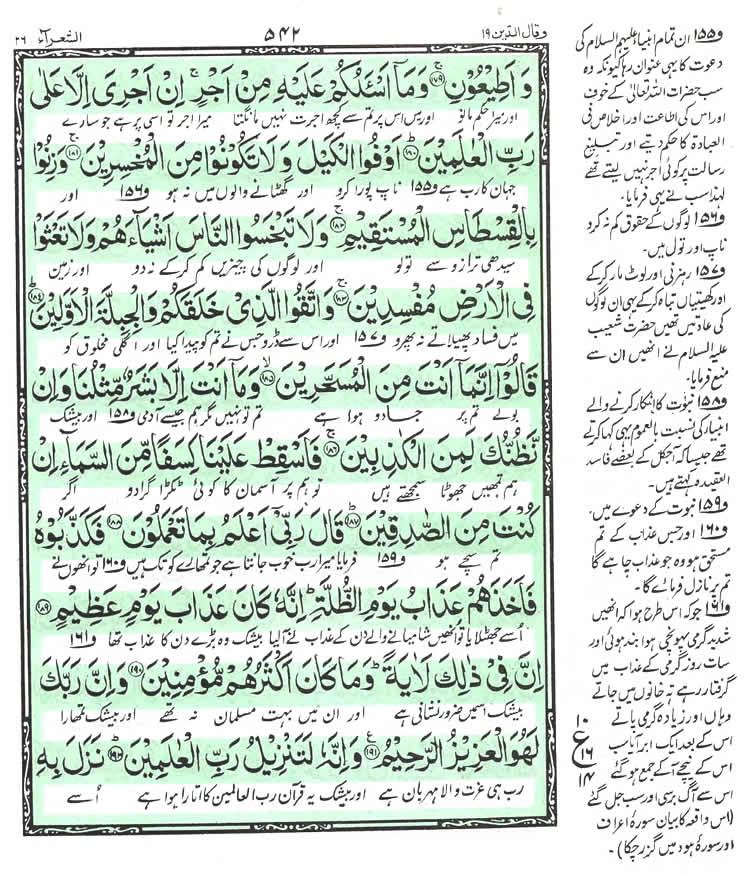 وقال الذین ۱۹
۵۴۲
الشعرآء ۲۶
وَ اَطِیْعُوْنِ ﴿۱۷۹﴾ وَمَاۤ اَسْئَلُكُمْ عَلَیْهِ مِنْ اَجْرٍ ۚ اِنْ اَجْرِیَ اِلَّا عَلٰی
اور میرا حکم مانو اور میں اس پر تم سے کچھ اجرت نہیں مانگتا میرا اجر تو اسی پر ہے جو سارے
رَبِّ الْعٰلَمِیْنَ ﴿۱۸۰﴾ اَوْفُوا الْكَیْلَ وَ لَا تَكُوْنُوْا مِنَ الْمُخْسِرِیْنَ ﴿۱۸۱﴾ وَزِنُوْا
جہان کا رب ہے و۱۵۵ ناپ پورا کرو اور گھٹانے والوں میں نہ ہو و۱۵۶ اور
بِالْقِسْطَاسِ الْمُسْتَقِیْمِ ﴿۱۸۲﴾ وَلَا تَبْخَسُوا النَّاسَ اَشْیَآءَهُمْ وَلَا تَعْثَوْا
سیدھی ترازو سے تولو اور لوگوں کی چیزیں کم کرکے نہ دو اور زمین
فِی الْاَرْضِ مُفْسِدِیْنَ ﴿۱۸۳﴾ وَاتَّقُوا الَّذِیْ خَلَقَكُمْ وَالْجِبِلَّةَ الْاَوَّلِیْنَ ﴿۱۸۴﴾
میں فساد پھیلاتے نہ پھرو و۱۵۷ اور اس سے ڈرو جس نے تم کو پیدا کیا اور اگلی مخلوق کو
قَالُوْۤا اِنَّمَاۤ اَنْتَ مِنَ الْمُسَحَّرِیْنَ ﴿۱۸۵﴾ وَمَاۤ اَنْتَ اِلَّا بَشَرٌ مِّثْلُنَا وَاِنْ
بولے تم پر جادو ہوا ہے تم تو نہیں مگر ہم جیسے آدمی و۱۵۸ اور بیشک
نَّظُنُّكَ لَمِنَ الْكٰذِبِیْنَ ﴿۱۸۶﴾ فَاَسْقِطْ عَلَیْنَا كِسَفًا مِّنَ السَّمَآءِ اِنْ
ہم تمھیں جھوٹا سمجھتے ہیں تو ہم پر آسمان کا کوئی ٹکڑا گرا دو اگر
كُنْتَ مِنَ الصّٰدِقِیْنَ ﴿۱۸۷﴾ قَالَ رَبِّیْۤ اَعْلَمُ بِمَا تَعْمَلُوْنَ ﴿۱۸۸﴾ فَكَذَّبُوْهُ
تم سچے ہو و۱۵۹ فرمایا میرا رب خوب جانتا ہے جو تمھارے کوتک ہیں و۱۶۰ تو انھوں نے
فَاَخَذَهُمْ عَذَابُ یَوْمِ الظُّلَّةِ ؕ اِنَّهٗ كَانَ عَذَابَ یَوْمٍ عَظِیْمٍ ﴿۱۸۹﴾
اُسے جھٹلایا تو اُنھیں شامیانے والے دن کے عذاب نے آلیا بیشک وہ بڑے دن کا عذاب تھا و۱۶۱
اِنَّ فِیْ ذٰلِكَ لَاٰیَةً ؕ وَمَا كَانَ اَكْثَرُهُمْ مُّؤْمِنِیْنَ ﴿۱۹۰﴾ وَاِنَّ رَبَّكَ
بیشک اسمیں ضرور نشانی ہے اور ان میں بہت مسلمان نہ تھے اور بیشک تمھارا
لَهُوَ الْعَزِیْزُ الرَّحِیْمُ ﴿۱۹۱﴾ وَاِنَّهٗ لَتَنْزِیْلُ رَبِّ الْعٰلَمِیْنَ ﴿۱۹۲﴾ نَزَلَ بِهِ
رب ہی عزت والا مہربان ہے اور بیشک یہ قرآن رب العالمین کا اتارا ہوا ہے اُسے
و۱۵۵ ان تمام انبیاء علیہم السلام کی
دعوت کا یہی عنوان رہا کیونکہ وہ
سب حضرات اللہ تعالیٰ کے خوف
اور اس کی اطاعت اور اخلاص فی
العبادۃ کا حکم دیتے اور تبلیغ
رسالت پر کوئی اجر نہیں لیتے تھے
لہٰذا سب نے یہی فرمایا۔
و۱۵۶ لوگوں کے حقوق کم نہ کرو
ناپ اور تول میں۔
و۱۵۷ رہزنی اور لوٹ مار کرکے
اور کھیتیاں تباہ کرکے یہی ان لوگوں
کی عادتیں تھیں حضرت شعیب
علیہ السلام نے انھیں ان سے
منع فرمایا۔
و۱۵۸ نبوت کا انکار کرنے والے
انبیاء کی نسبت بالعموم یہی کہا کرتے
تھے جیسا کہ آجکل کے بعضے فاسد
العقیدہ کہتے ہیں۔
و۱۵۹ نبوت کے دعوے میں۔
و۱۶۰ اور جس عذاب کے تم
مستحق ہو وہ جو عذاب چاہے گا
تم پر نازل فرمائے گا۔
و۱۶۱ جو کہ اس طرح ہوا کہ انھیں
شدید گرمی پہونچی ہوا بند ہوئی اور
سات روز گرمی کے عذاب میں
گرفتار رہے تہ خانوں میں جاتے
وہاں اور زیادہ گرمی پاتے
اس کے بعد ایک ابر آیا سب
اس کے نیچے آکے جمع ہوگئے
اس سے آگ برسی اور سب جل گئے
(اس واقعہ کا بیان سورۂ اعراف
اور سورۂ ہود میں گزر چکا)۔
۱۰
ع
۱۶
۱۴